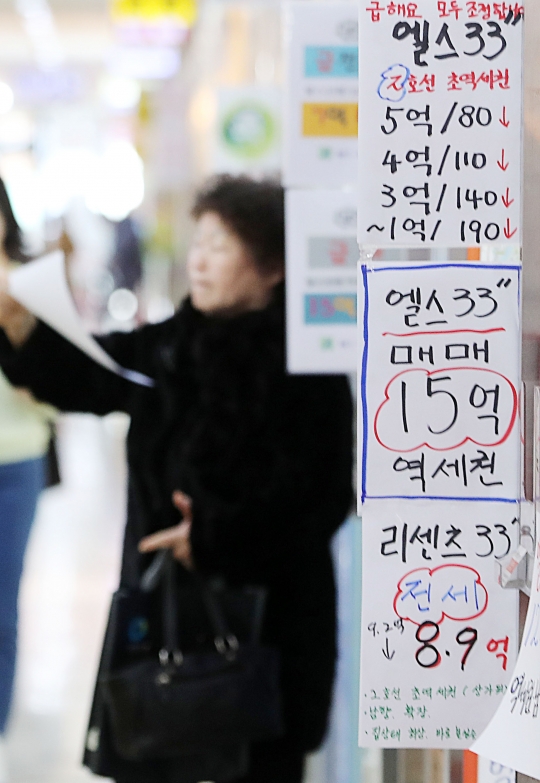 급해요 모두 조정됩니다
엘스 33"
2호선 초역세권
5억/80↓
4억/110↓
3억/140↓
~1억/190↓
엘스 33"
매매
15억
역세권
리센츠 33"
전세
9.2억
↓ 8.9억
·2호선 초역세권 (상가뷰)
·남향. 확장.